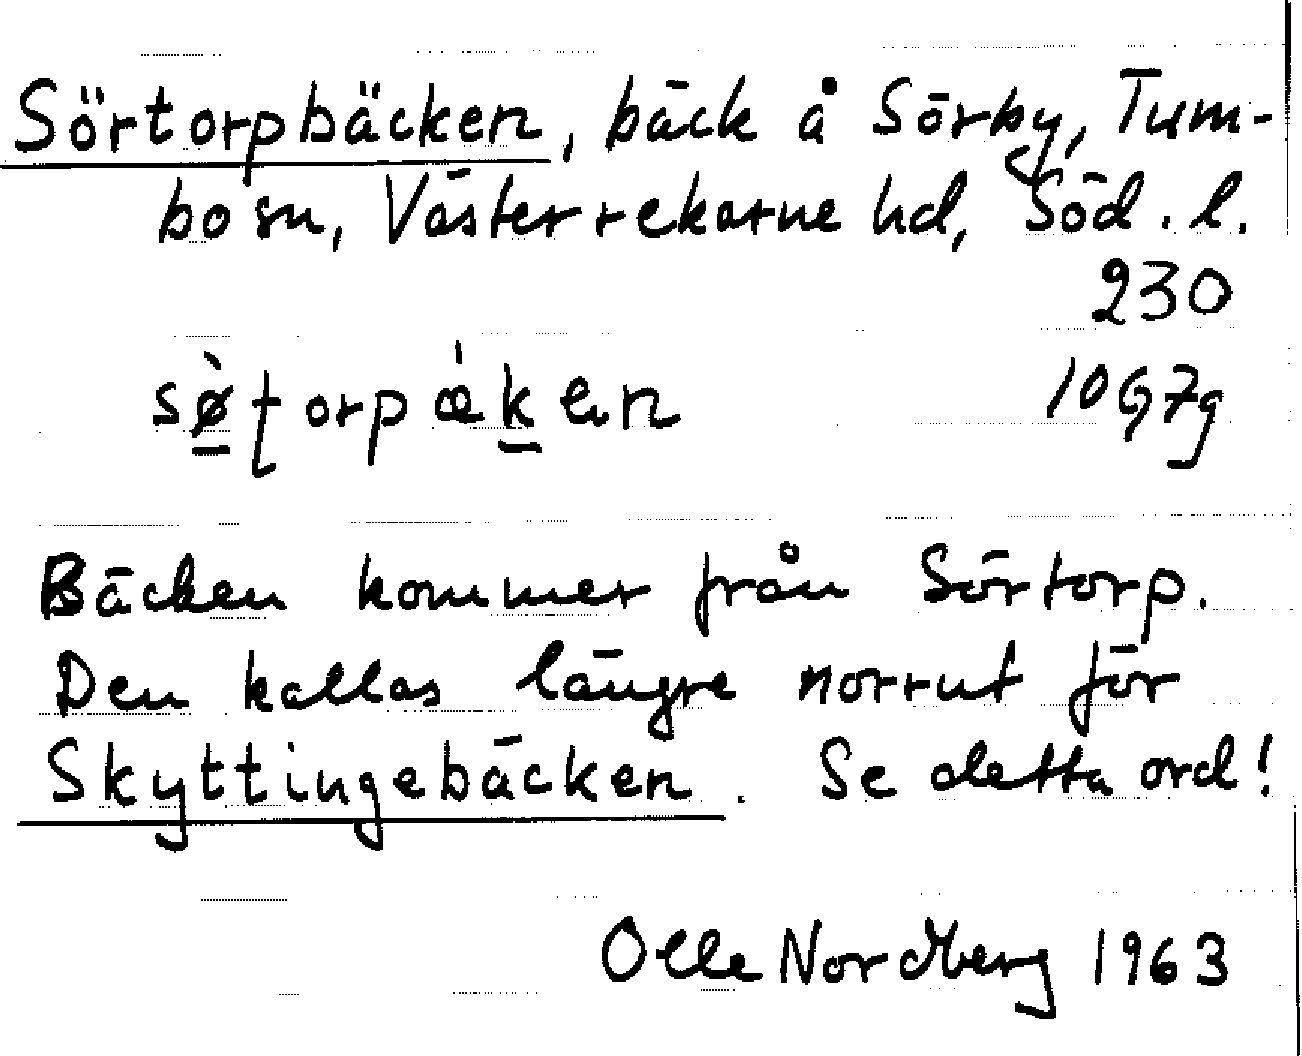 Sörtorpbäcken, bäck å Sörby, Tum-
bo sn, Västerrekarne hd, Söd. l.
230
sø̀torpæ̀ken 10G7g
Bäcken kommer från Sörtorp.
Den kallas längre norrut för
Skyttingebäcken. Se detta ord!
Olle Nordberg 1963